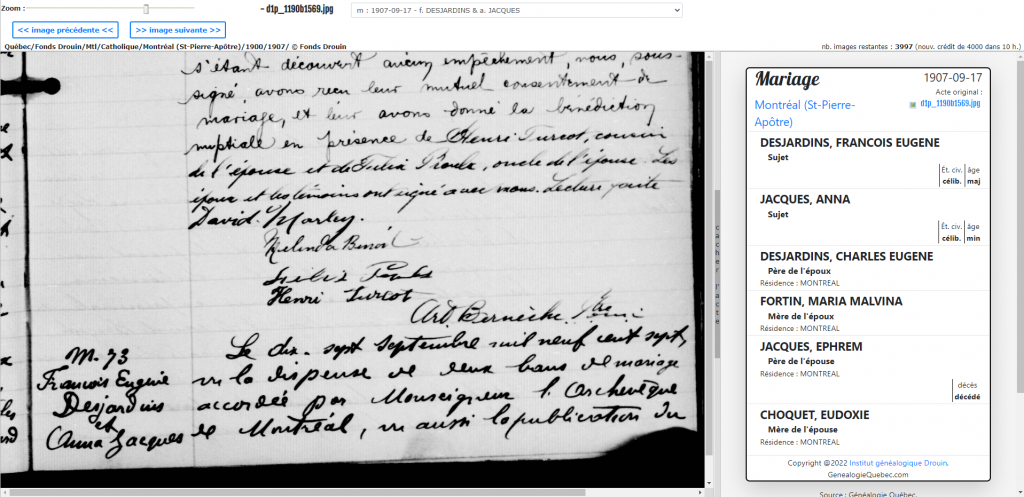 Zoom :
- d1p_1190b1569.jpg
m : 1907-09-17 - f. DESJARDINS & a. JACQUES
<< image précédente <<
>> image suivante >>
Québec/Fonds Drouin/Mtl/Catholique/Montréal (St-Pierre-Apôtre)/1900/1907/ © Fonds Drouin
nb. images restantes : 3997 (nouv. crédit de 4000 dans 10 h.)
s'étant découvert aucun empêchement, nous, sous-
signé, avons reçu leur mutuel consentement de
mariage, et leur avons donné la bénédiction
nuptiale en présence de Henri Turcot, cousin
de l'épouse et de Félix Proulx, oncle de l'épouse. Les
époux et les témoins ont signé avec nous. Lecture faite
David Marley.
Melinda Benoit
Henri Turcot
M. 73
François Eugène
Desjardins
et
Anna Jacques
Le dix-sept septembre mil neuf cent sept,
vu la dispense de deux bans de mariage
accordée par Monseigneur l'Archevêque
de Montréal, vu aussi la publication du
cacher l'acte
Mariage
1907-09-17
Acte original :
d1p_1190b1569.jpg
Montréal (St-Pierre-
Apôtre)
DESJARDINS, FRANCOIS EUGENE
Sujet
Ét. civ. âge
célib. maj
JACQUES, ANNA
Sujet
Ét. civ. âge
célib. min
DESJARDINS, CHARLES EUGENE
Père de l'époux
Résidence : MONTREAL
FORTIN, MARIA MALVINA
Mère de l'époux
Résidence : MONTREAL
JACQUES, EPHREM
Père de l'épouse
Résidence : MONTREAL
décès
décédé
CHOQUET, EUDOXIE
Mère de l'épouse
Résidence : MONTREAL
Copyright @2022 Institut généalogique Drouin.
GenealogieQuebec.com
Source : Généalogie Québec.